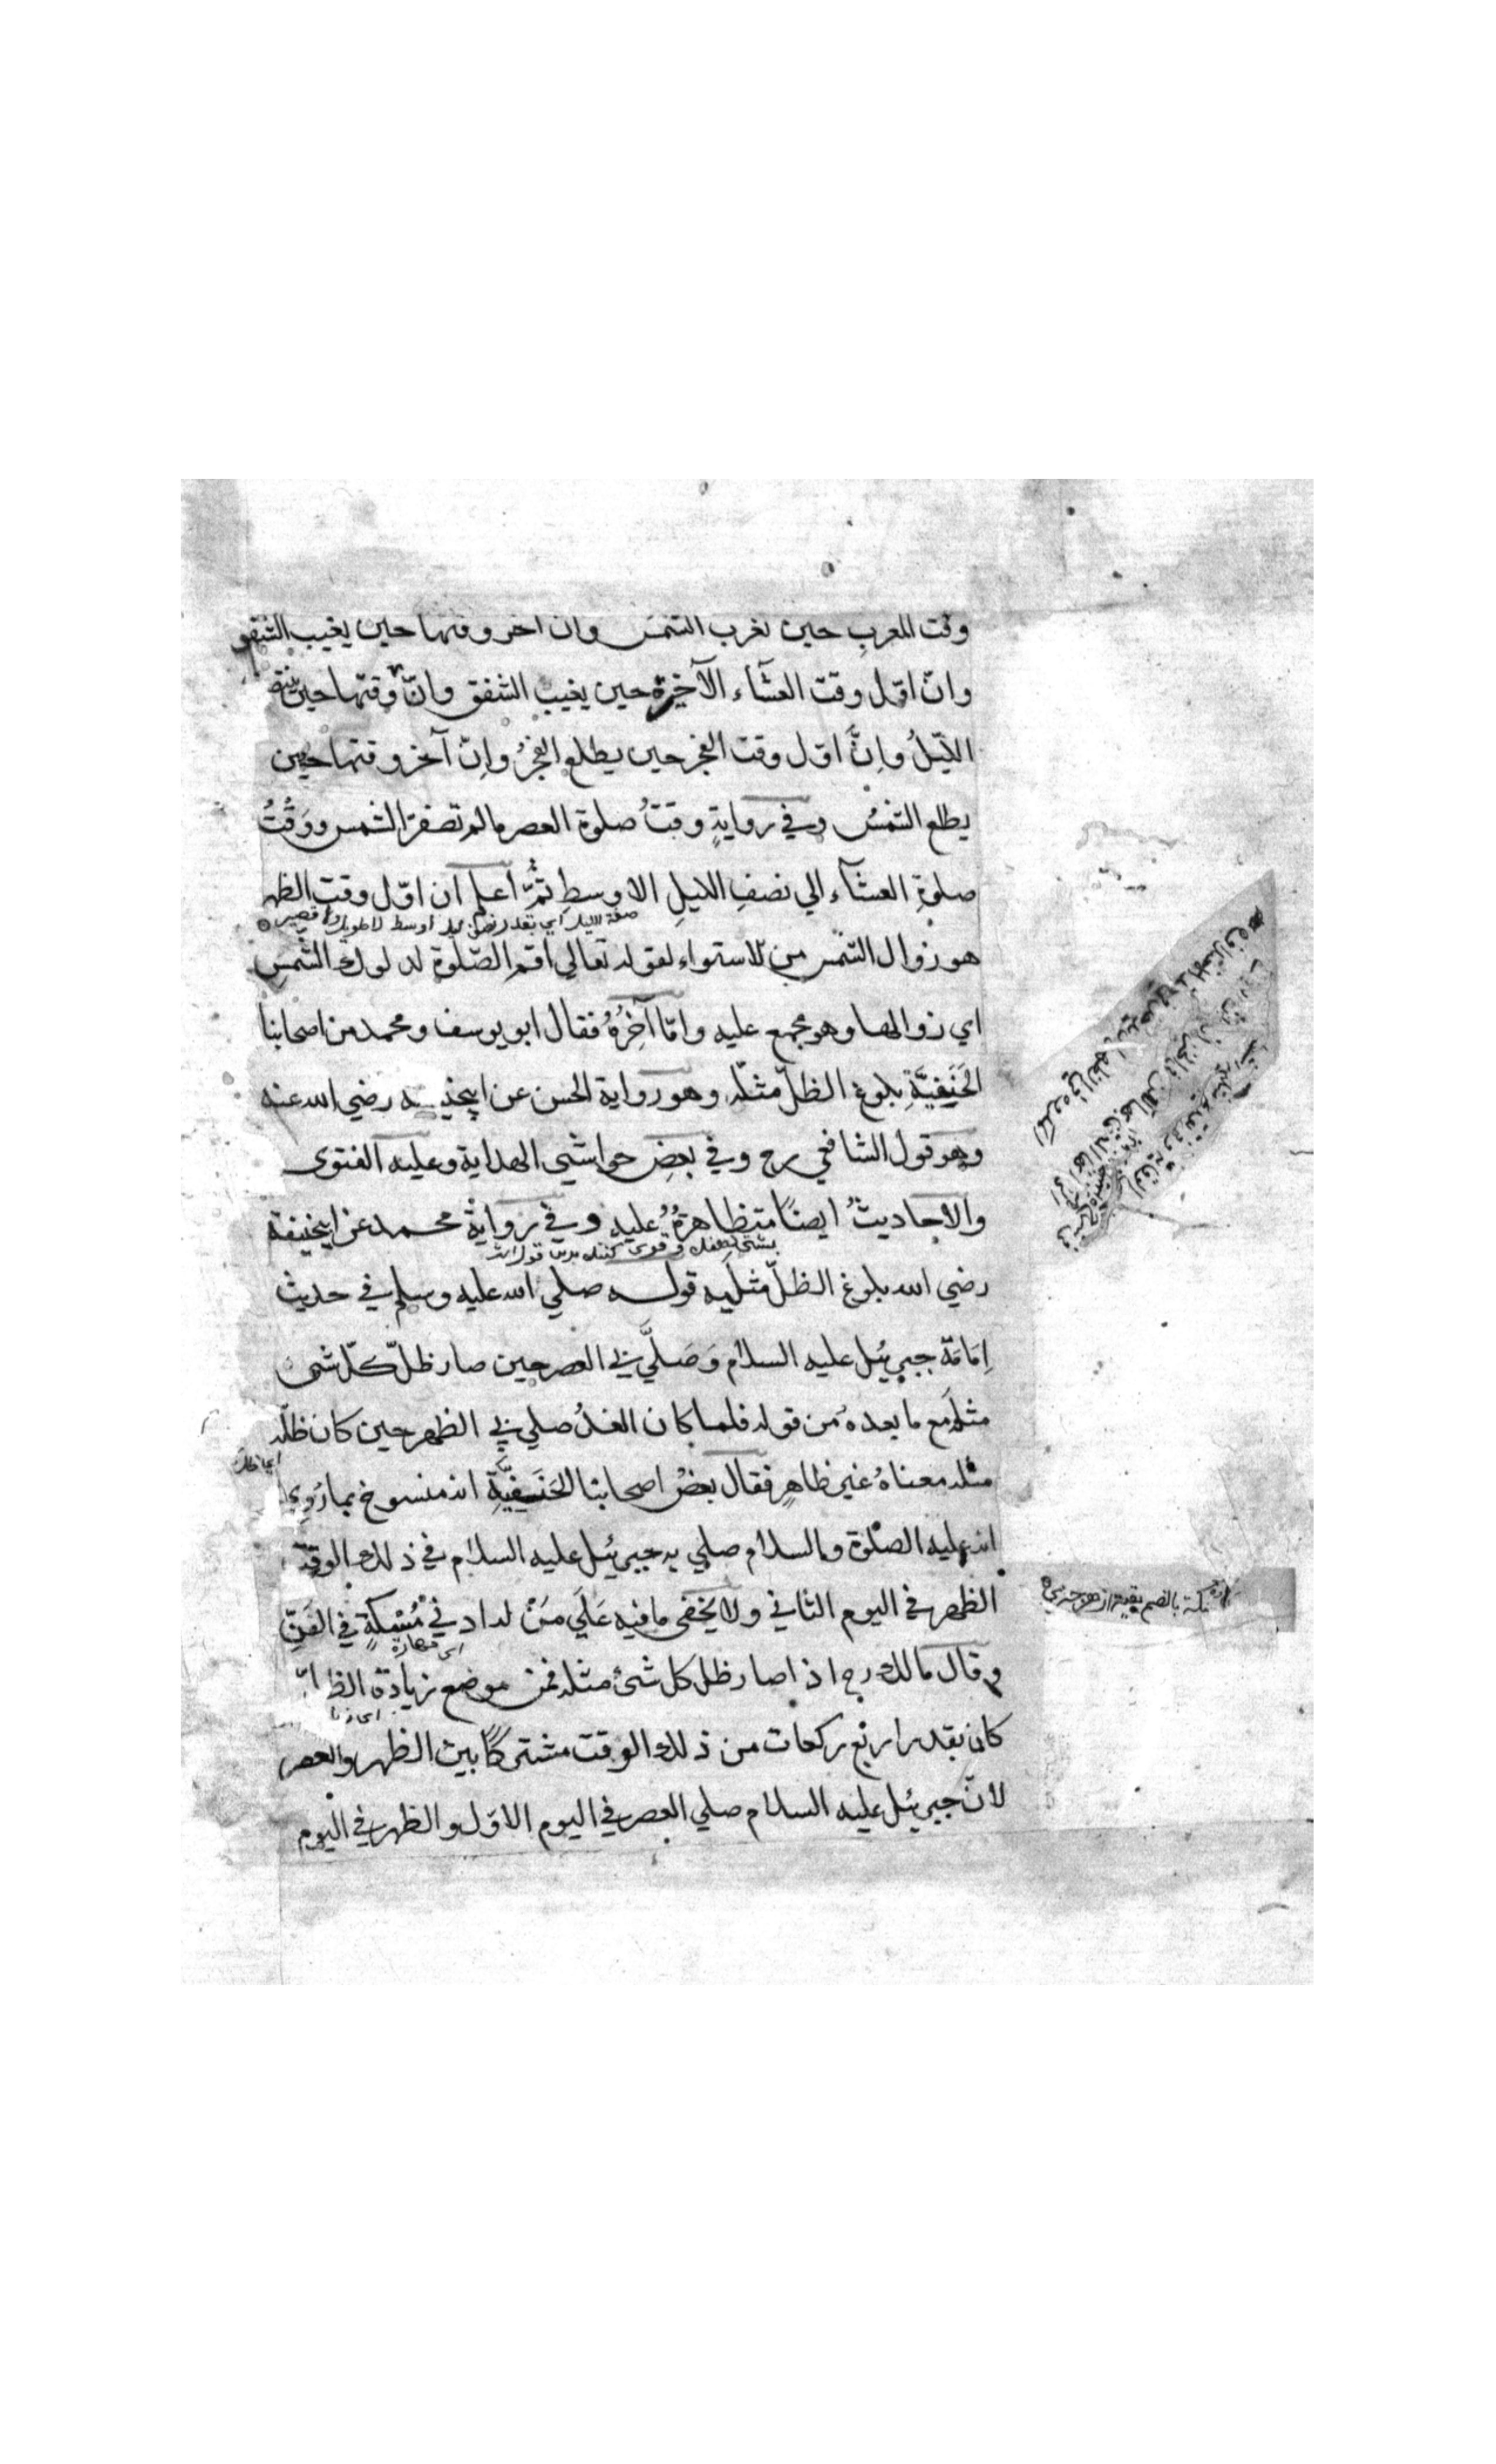 وقت المغرب حين تغرب الشمس وان آخر وقتها حين يغيب الشفق
وانّ اوّل وقت العشآء الآخرة حين يغيب الشفق وانّ وقتها حين ينتصف
اللّيلُ واِنَّ اوّل وقت الفجر حين يطلع الفجرُ واِنّ آخر وقتها حين
يطلع الشمسُ وفي روايةٍ وقتُ صلوة العصر مالم تصفرّ الشمس ووَقْتُ
صلوةِ العشآء الي نصفِ الليلِ الاوسطِ ثُمَّ اعلم ان اوّل وقت الظهر
صفة الليل اي بقدر نصف ليل اوسط لا طويل ولا قصير
هو زوال الشمس من الاستواء لقوله تعالي اقم الصّلوة لدلوك الشمسِ
اي زوالها وهو مجمع عليه وامّا آخِرُهُ فقال ابو يوسف ومحمد من اصحابنا
الحَنَفِيَّةِ بلوغ الظلّ مثلَه وهو رواية الحسن عن ابيحنيفه رضي الله عنه
وهو قول الشافعي رح وفي بعضِ حواشي الهداية وعليه الفتوى
والاحاديثُ ايضًا متظاهرةٌ عليه وفي رواية محمد عن ابيحنيفة
رضي الله بلوغ الظلّ مثلَيه قوله صلي الله عليه وسلم في حديث
اِمَامَة جبرئيل عليه السلام وَصَلَّي بي العصر حين صار ظلّ كلّ شئ
مثلَه مع ما بعده من قوله فلما كان الغدُ صلي بي الظهر حين كان ظلّه
اي ظل
مثله معناهُ غير ظاهرٍ فقال بعضُ اصحابنا الحَنَفِيَّةِ انه منسوخ بما رُوِي
انه عليه الصلوة والسلام صلي به جبرئيل عليه السلام في ذلك الوقت
الظهر في اليوم الثاني ولا يخفى ما فيه عَلَي مَنْ له ادني مُسْكةٍ في الفَنِّ
مسكة بالضم بقيه از هر چيزي
اي مهارة
وقال مالك رح اذا صار ظل كل شئ مثله فمن موضع زيادة الظلّ
كان بقدر اربع ركعات من ذلك الوقت مشتركًا بين الظهر والعصر
لانّ جبرئيل عليه السلام صلي العصر في اليوم الاوّل والظهر في اليوم